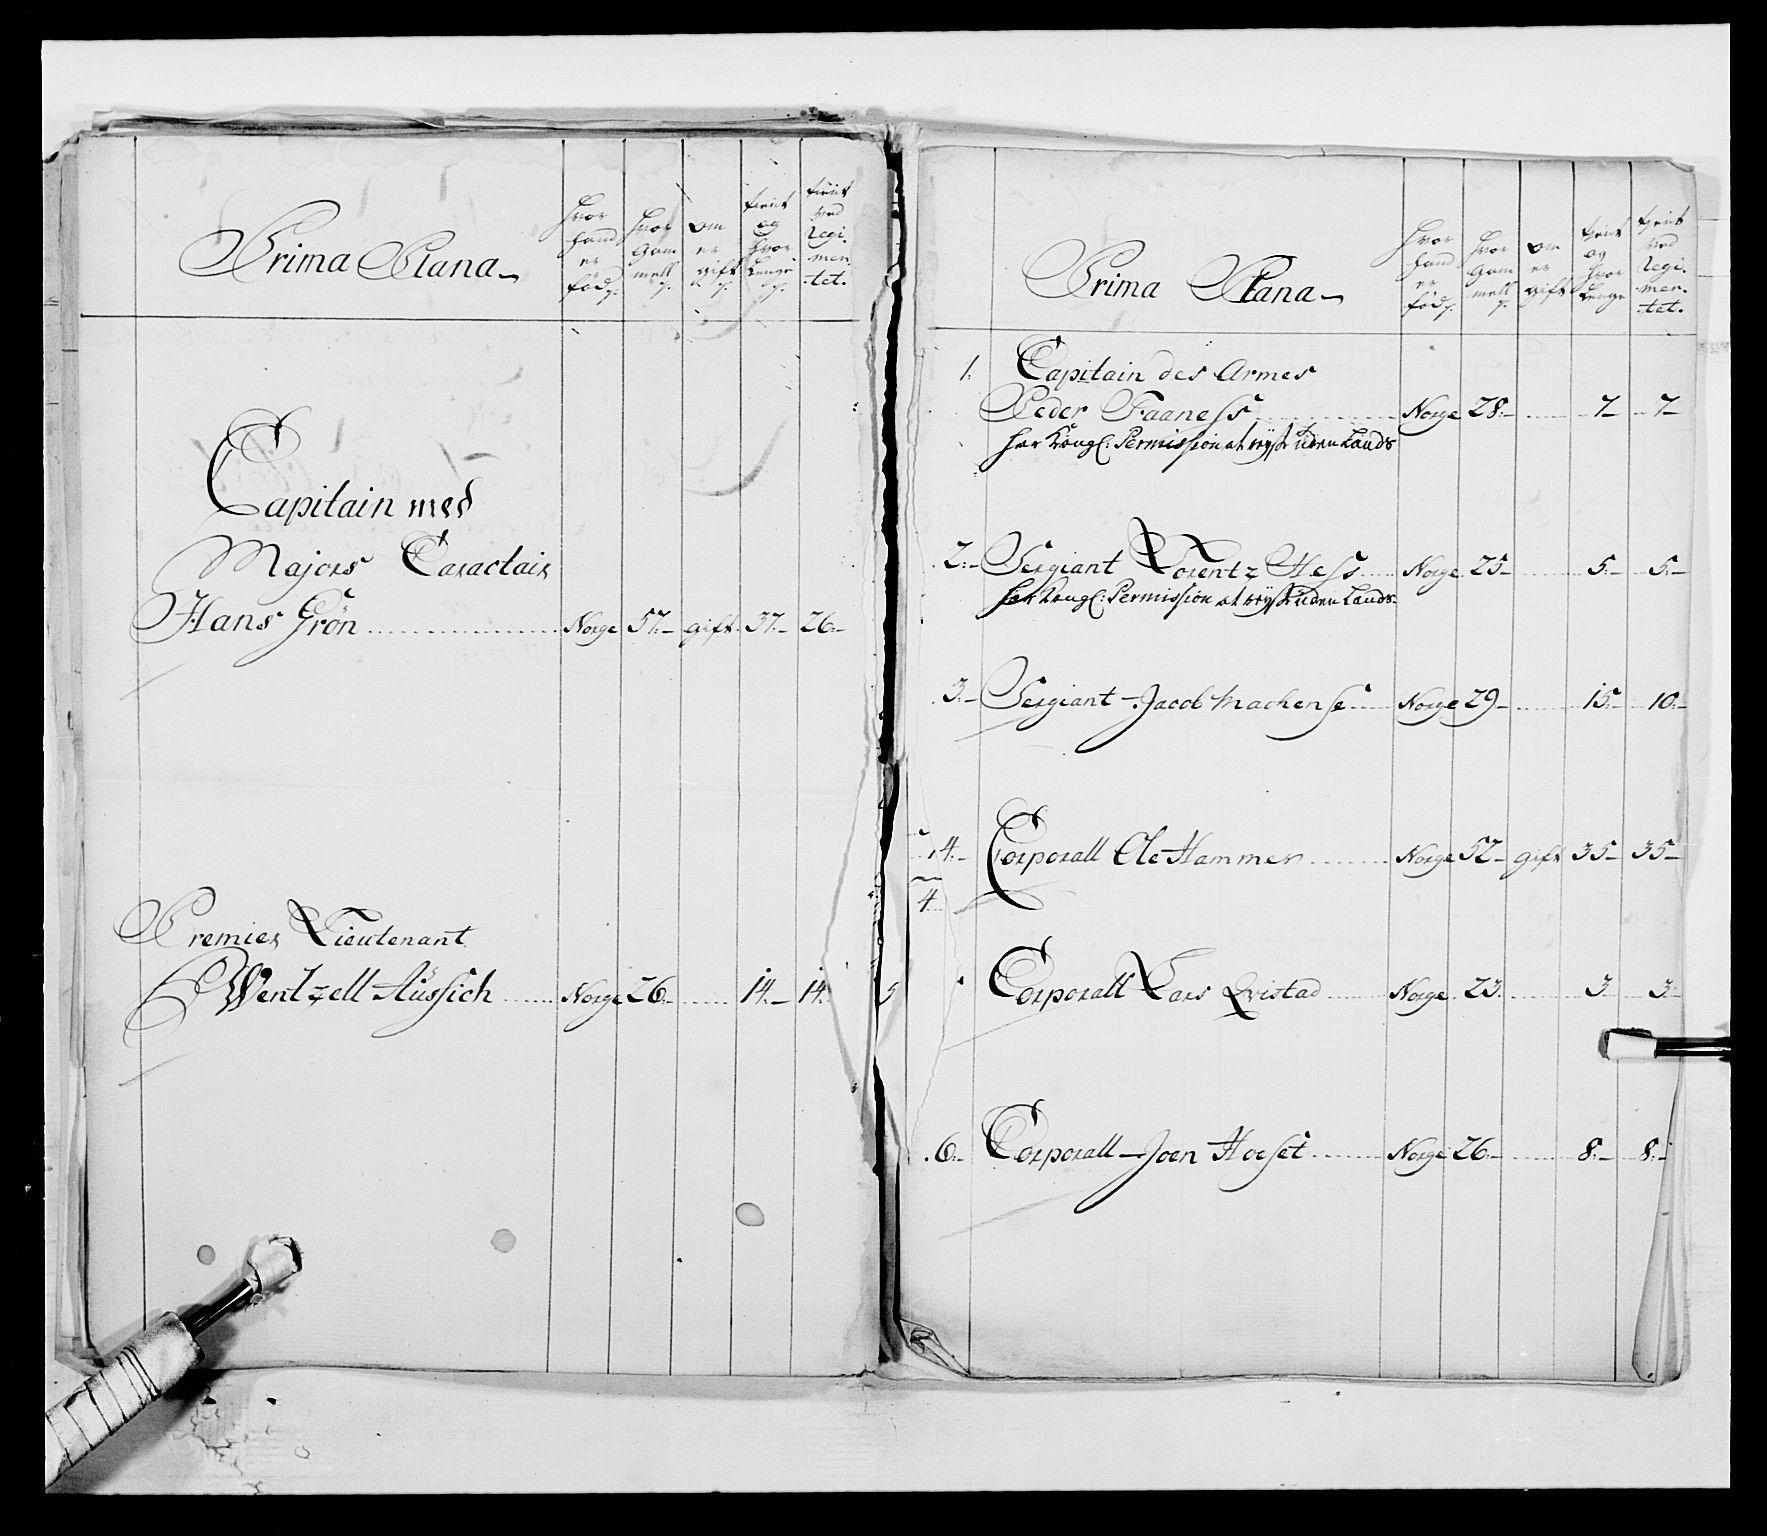 Prima Plana
hvor hand er fød
hvor gam mell
om er gift
tient og hvor lenge
tient ved Regi. men. tet.
Capitain med
Majors Caractair
Hans Grön Norge 57. gift 37. 26.
Premier Lieutenant
Wentzell Hüssich Norge 26. 14. 14.
Prima Plana
hvor hand er fød
hvor gam mell
om er gift
tient og hvor lenge
tient ved Regi. men. tet.
1. Capitain des Armes
Peder Faaness Norge 28. 7 7
har Kongl: Permission at reyse uden Lands
2. Sergiant Lorentz Hess Norge 25 5. 5.
har Kongl: Permission at reyse uden Lands
3. Sergiant Jacob Machense Norge 29 15. 10.
4. Corporall Ole Hammer Norge 52 gift 35 35
4
5 Corporall Lars Qvistad Norge 23. 3 3
6. Corporall Joen Hoeset Norge 26. 8. 8.